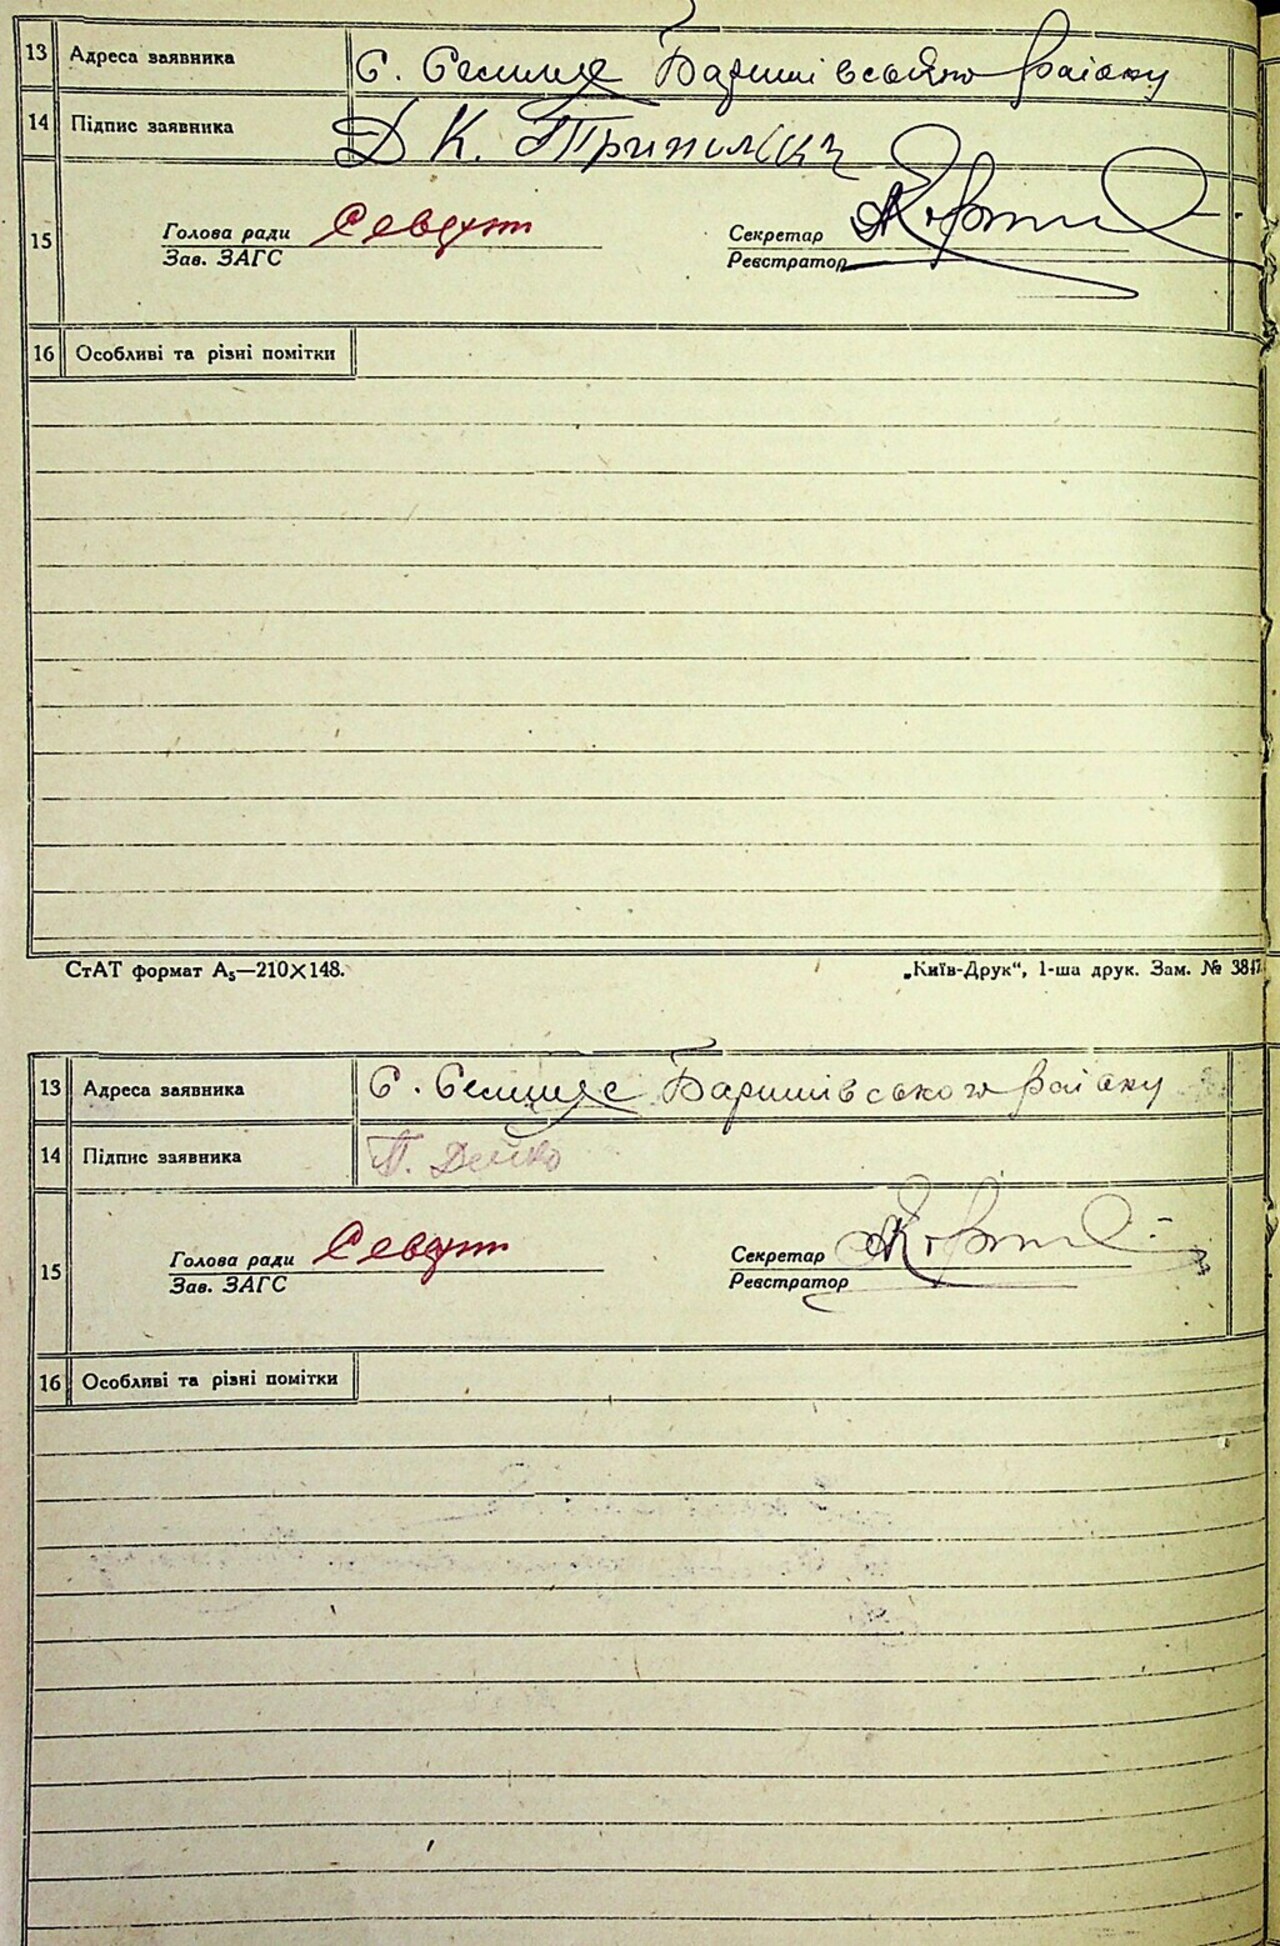 13 Адреса заявника с. Селище Баришівського району
14 Підпис заявника Д К.
15 Голова ради Секретар
Зав. ЗАГС Реєстратор
16 Особливі та різні помітки
СтАТ формат А₅—210×148. „Київ-Друк“, 1-ша друк. Зам. №
13 Адреса заявника с. Селище Баришівського району
14 Підпис заявника П. Дейко
15 Голова ради Секретар
Зав. ЗАГС Реєстратор
16 Особливі та різні помітки